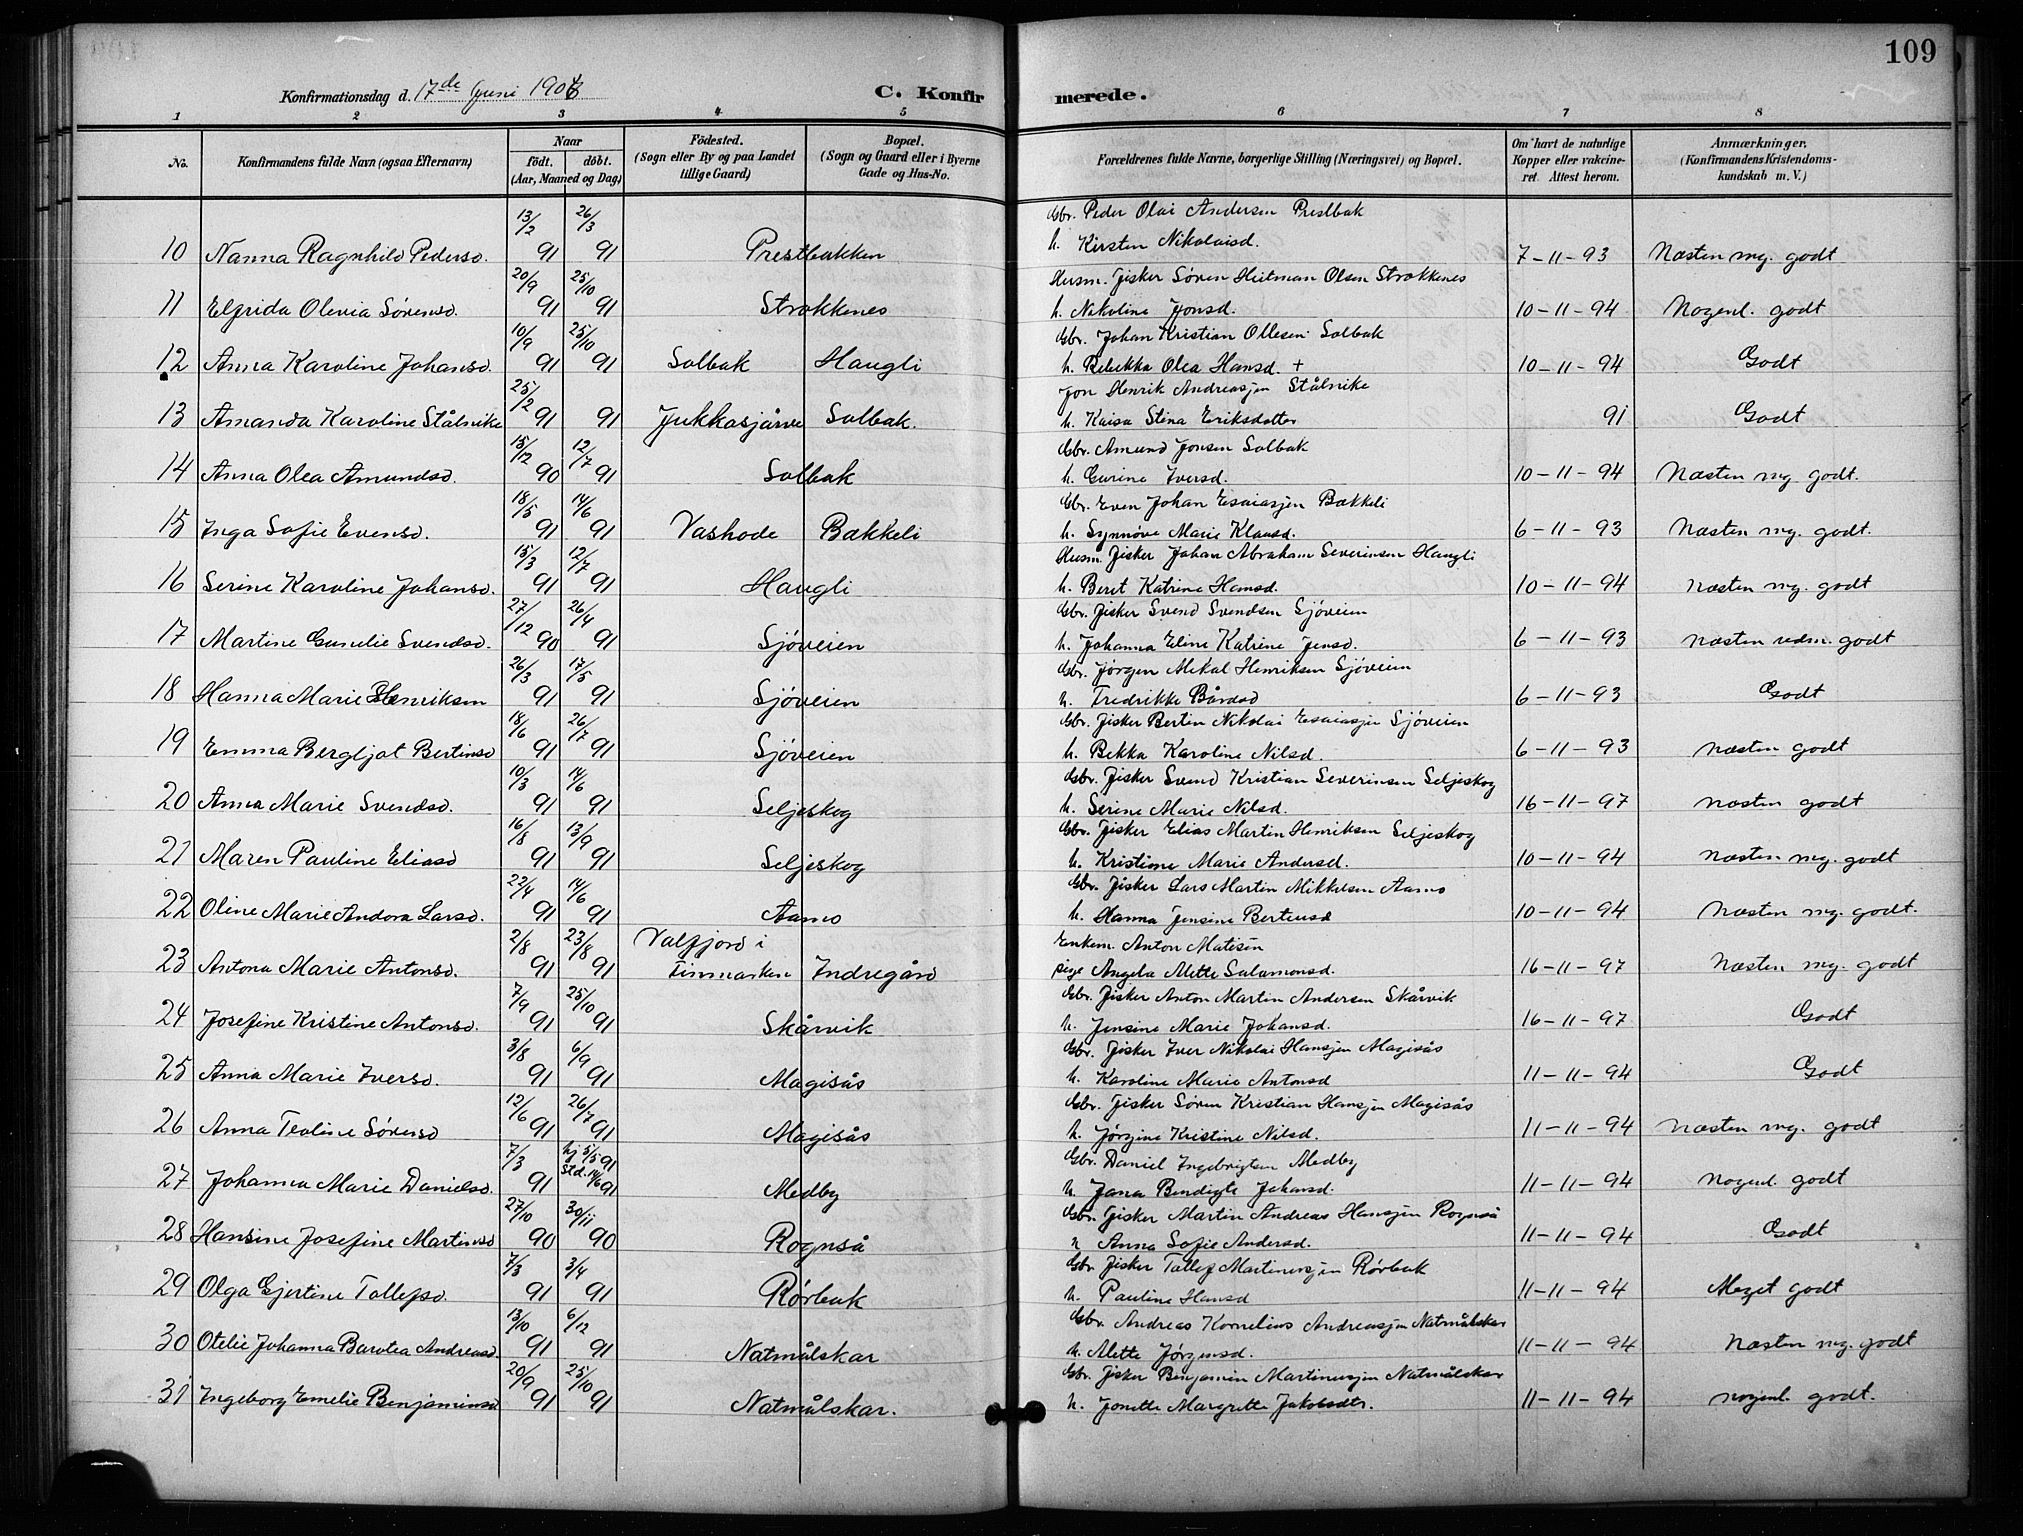 109
Konfirmationsdag d. 17de Juni 1906
C. Konfirmerede.
1 2 3 4 5 6 7 8
No.
Konfirmandens fulde Navn (ogsaa Efternavn)
Naar
födt. döbt.
(Aar, Maaned og Dag)
Födested.
(Sogn eller By og paa Landet
tillige Gaard)
Bopæl.
(Sogn og Gaard eller i Byerne
Gade og Hus-No.
Forældrenes fulde Navne, borgerlige Stilling (Næringsvei) og Bopæl.
Om havt de naturlige
Kopper eller vakcine-
ret. Attest herom.
Anmærkninger.
(Konfirmandens Kristendoms-
kundskab m. V.)
13/2 26/3 Gbr. Peder Olai Andersen Prestbak
10 Nanna Ragnhild Pedersd. 91 91 Prestbakken h. Kirsten Nikolaisd. 7-11-93 Næsten mg. godt
20/9 25/10 Husm. Fisker Søren Heitman Olsen Strokkenes
11 Elfrida Olevia Sørensd. 91 91 Strokkenes h. Nikoline Jonsd. 10-11-94 Nogenl. godt
10/9 25/10 Gbr. Johan Kristian Ollesen Solbak
12 Anna Karoline Johansd. 91 91 Solbak Haugli h. Rebekka Olea Hansd. + 10-11-94 Godt
25/2 Jon Henrik Andreasjen Stålnike
13 Amanda Karoline Stålnike 91 91 Jukkasjårve Solbak. h. Kaisa Stina Eriksdotter 91 Godt
15/12 12/7 Gbr. Amund Jonsen Solbak
14 Anna Olea Amundsd. 90 91 Solbak h. Gurine Iversd. 10-11-94 Næsten mg godt.
18/5 14/6 Gbr. Even Johan Esaiasjen Bækkeli
15 Inga Sofie Evensd. 91 91 Vashode Bækkeli h. Synnøve Marie Klausd. 6-11-93 Næsten mg. godt.
15/3 12/7 Husm. Fisker Johan Abraham Severinsen Haugli
16 Serine Karoline Johansd. 91 91 Haugli h. Beret Katrine Hansd. 10-11-94 Næsten mg. godt
27/12 26/4 Gbr. Fisker Svend Svendsen Sjøveien
17 Martine Gunelie Svendsd. 90 91 Sjøveien h. Johanna Eline Katrine Jensd. 6-11-93 Næsten udm. godt
26/3 17/5 Gbr. Jørgen Mekal Henriksen Sjøveien
18 Hanna Marie Henriksen 91 91 Sjøveien h. Fredrikke Bårdsd 6-11-93 Godt
18/6 26/7 Gbr. Fisker Bertin Nikolai Esaiasjen Sjøveien
19 Emma Bergljot Bertinsd 91 91 Sjøveien h. Bekka Karoline Nilsd. 6-11-93 Næsten godt
10/3 14/6 Gbr. Fisker Svend Kristian Severinsen Seljeskog
20 Anna Marie Svendsd. 91 91 Seljeskog h. Serine Marie Nilsd. 16-11-97 Næsten godt
16/8 13/9 Gbr. Fisker Elias Martin Henriksen Seljeskog
21 Maren Pauline Eliasd 91 91 Seljeskog h. Kristine Marie Andersd. 10-11-94 Næsten mg. godt
22/4 14/6 Gbr. Fisker Lars Martin Mikkelsen Aamo
22 Oline Marie Andora Larsd. 91 91 Aamo h. Hanna Jensine Bertensd 10-11-94 Næsten mg. godt.
2/8 23/8 Valfjord i Enkem. Anton Matisen
23 Antona Marie Antonsd. 91 91 Finmarken Indregård pige Angela Alette Salamonsd. 16-11-97 Næsten mg. godt
7/9 25/10 Gbr. Fisker Anton Martin Andersen Skårvik
24 Josefine Kristine Antonsd. 91 91 Skårvik h. Jensine Marie Johansd. 16-11-97 Godt
3/8 6/9 Gbr. Fisker Iver Nikolai Hansjen Magisås
25 Anna Marie Iversd. 91 91 Magisås h. Karoline Marie Antonsd 11-11-94 Godt
12/6 26/7 Gbr. Fisker Søren Kristian Hansjen Magisås
26 Anna Teoline Sørensd 91 91 Magisås h. Jørgine Kristine Nilsd. 11-11-94 Næsten mg. godt
7/3 hj 5/5 91 Gbr. Daniel Ingebrigtsen Medby
27 Johanna Marie Danielsd. 91 Std. 14/6 91 Medby h. Jana Bendigte Johansd. 11-11-94 Nogenl. godt
27/10 30/11 Gbr. Fisker Martin Andreas Hansjen Rognså
28 Hansine Josefine Martinsd 90 90 Rognså h Anna Sofie Andersd. 11-11-94 Godt
7/3 3/4 Gbr. Fisker Tollef Martinusjen Rørbak
29 Olga Gjertine Tollefsd. 91 91 Rørbak h. Pauline Hansd 11-11-94 Meget godt
13/10 6/12 Gbr. Andreas Kornelius Andreasjen Natmålskar
30 Otelie Johanna Barotea Andreasd. 91 91 Natmålskar h. Alette Jørgensd. 11-11-94 Næsten mg. godt
20/9 25/10 Gbr. Fisker Benjamin Martinusjen Natmålskar
31 Ingeborg Emelie Benjaminsd 91 91 Natmålskar. h. Jonette Margrette Jakobsdtr. 11-11-94 nogenl. godt.